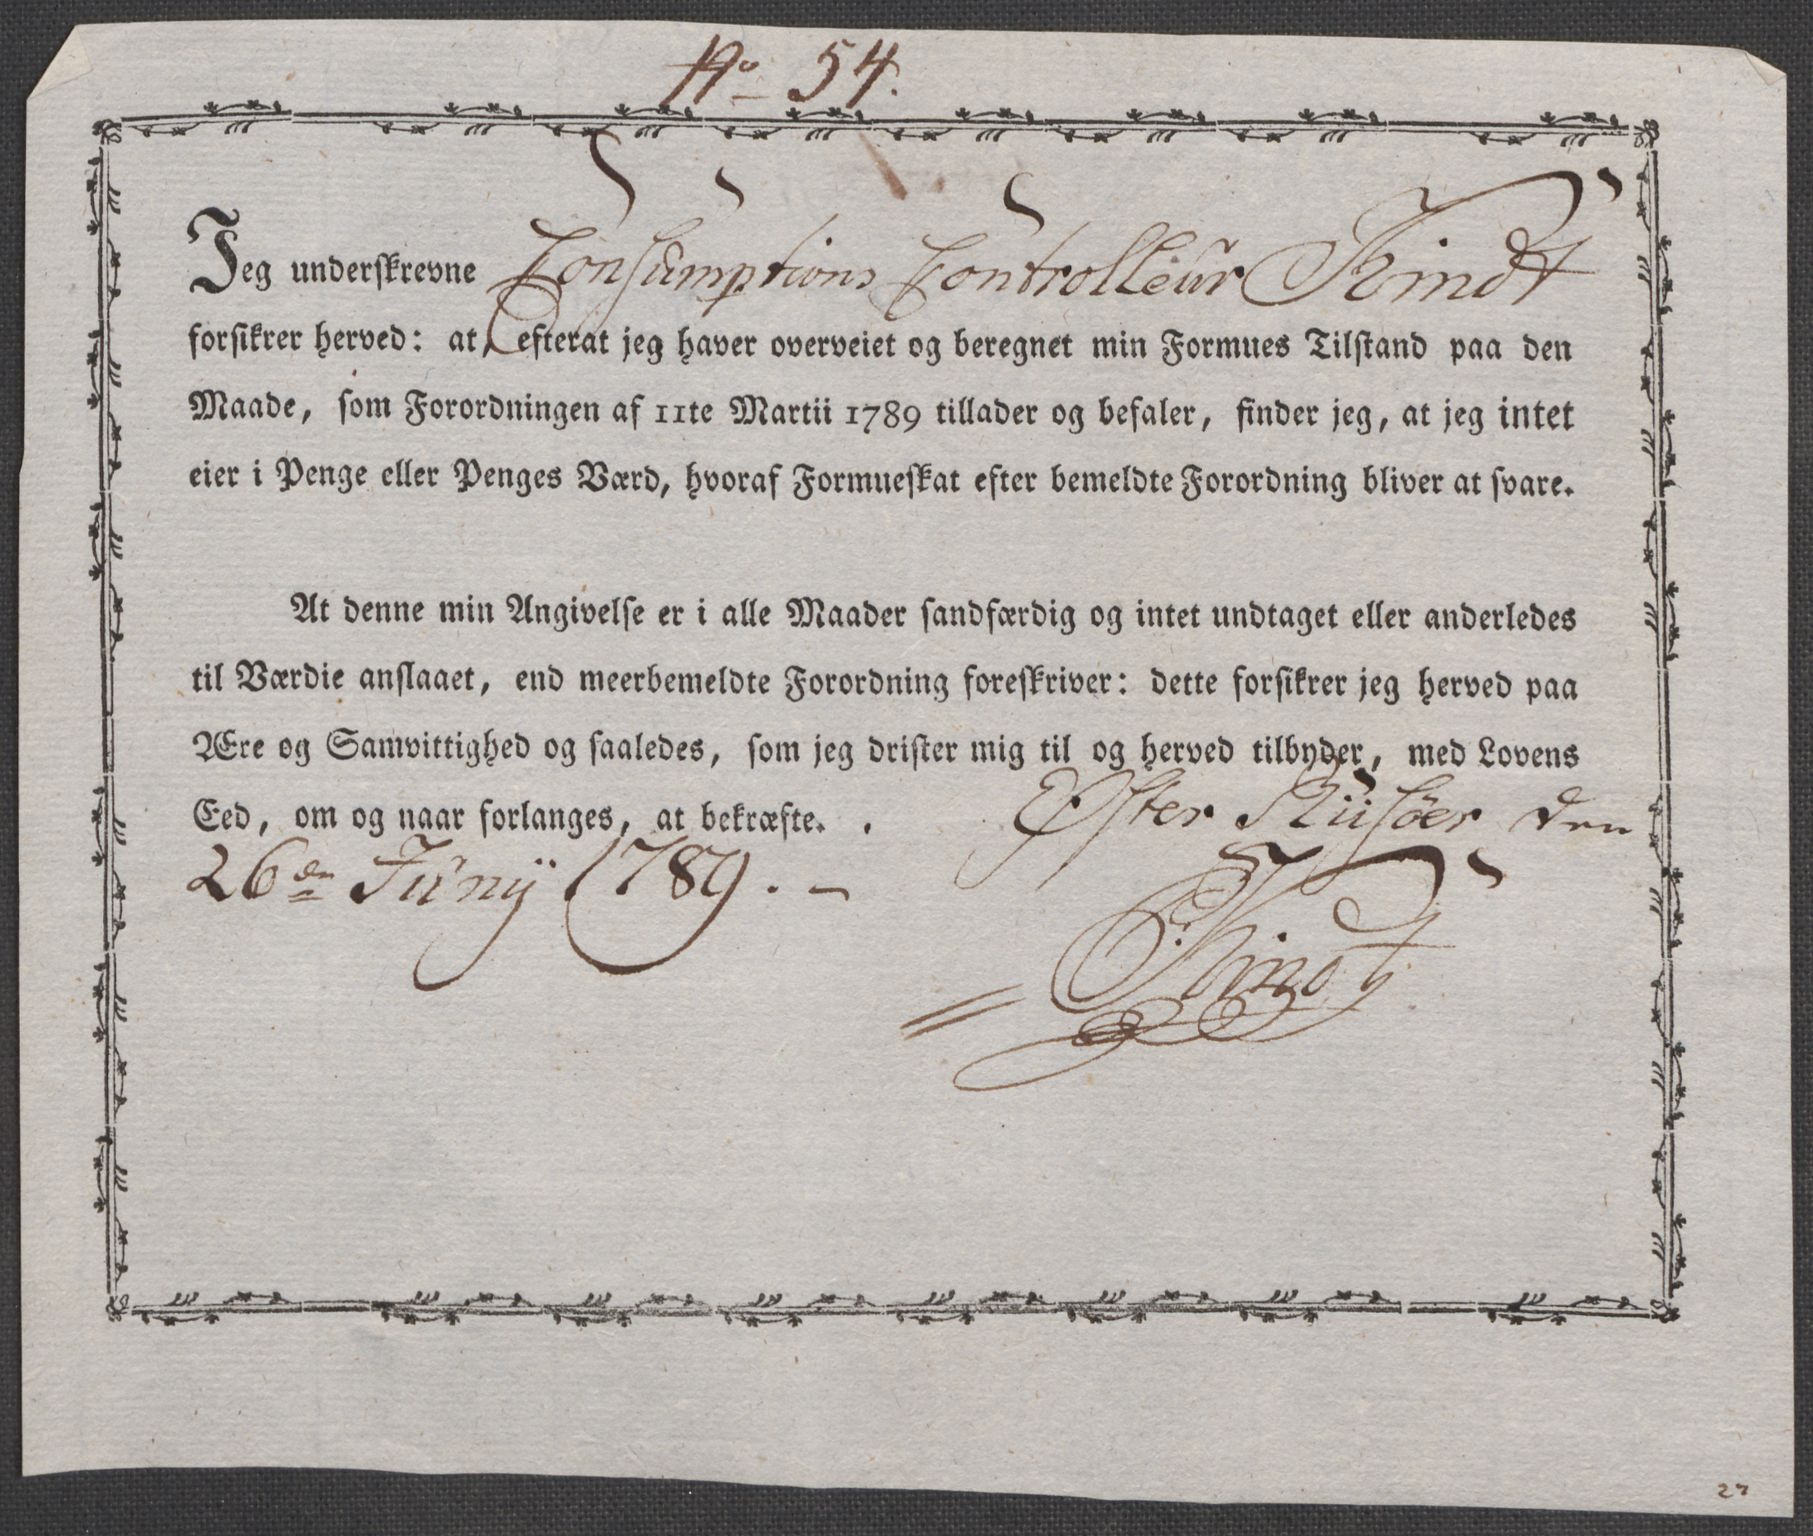 No 54.
Jeg underskrevne Consumptions Controlleur Kindt
forsikrer herved: at, efterat jeg haver overveiet og beregnet min Formues Tilstand paa den
Maade, som Forordningen af 11te Martii 1789 tillader og befaler, finder jeg, at jeg intet
eier i Penge eller Penges Værd, hvoraf Formueskat efter bemeldte Forordning bliver at svare.
At denne min Angivelse er i alle Maader sandfærdig og intet undtaget eller anderledes
til Værdie anslaaet, end meerbemeldte Forordning foreskriver: dette forsikrer jeg herved paa
Ære og Samvittighed og saaledes, som jeg drister mig til og herved tilbyder, med Lovens
Eed, om og naar forlanges, at bekræfte. . Øster Riisøer den
26de Juny 1789. –
Kindt
27